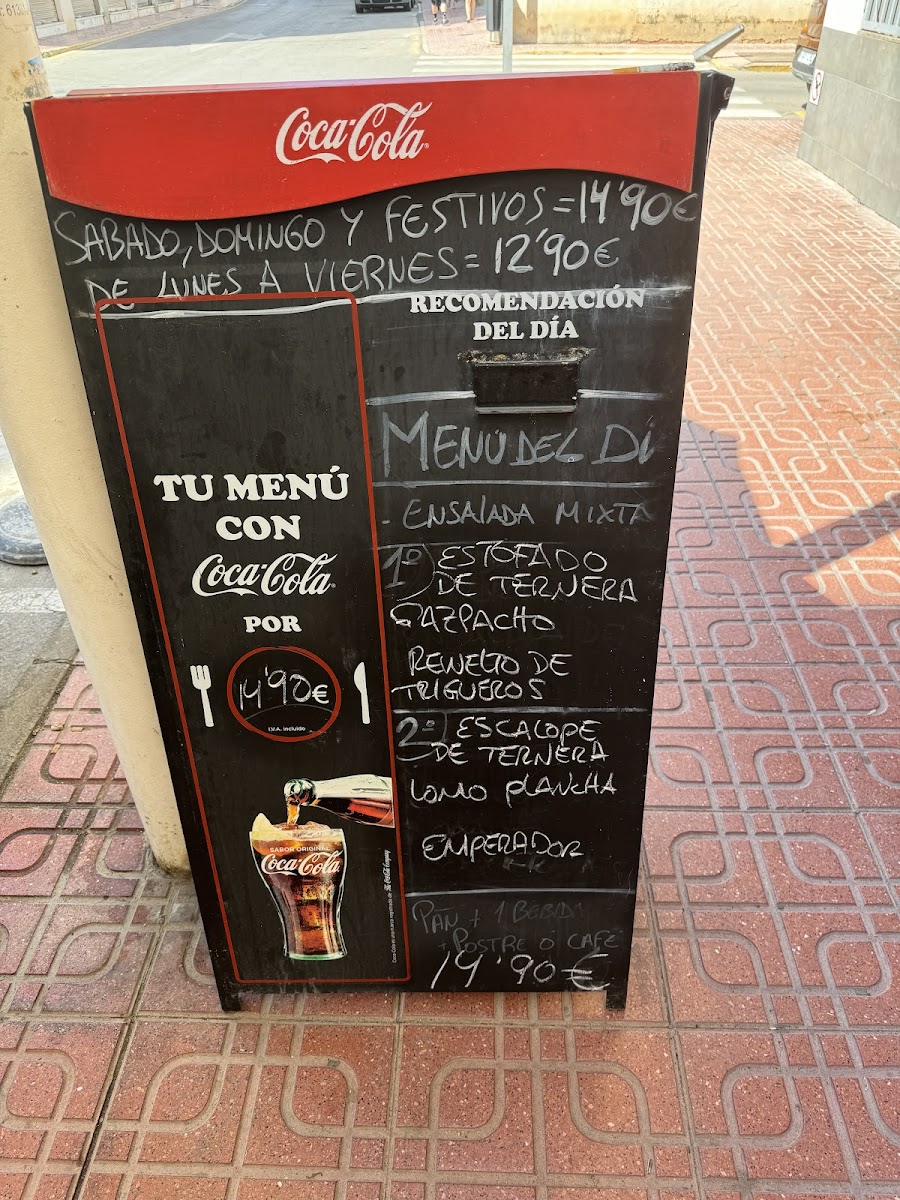 Coca-Cola
SABADO, DOMINGO Y FESTIVOS = 14'90€
DE LUNES A VIERNES = 12'90€
RECOMENDACIÓN
DEL DÍA
MENÚ DEL DÍ
- ENSALADA MIXTA
1º) ESTOFADO
DE TERNERA
GAZPACHO
REVUELTO DE
TRIGUEROS
2º ESCALOPE
DE TERNERA
LOMO PLANCHA
EMPERADOR
PAN + 1 BEBIDA
+ POSTRE Ó CAFÉ
14'90€
TU MENÚ
CON
Coca-Cola
POR
14'90€
I.V.A. incluido
SABOR ORIGINAL
Coca-Cola